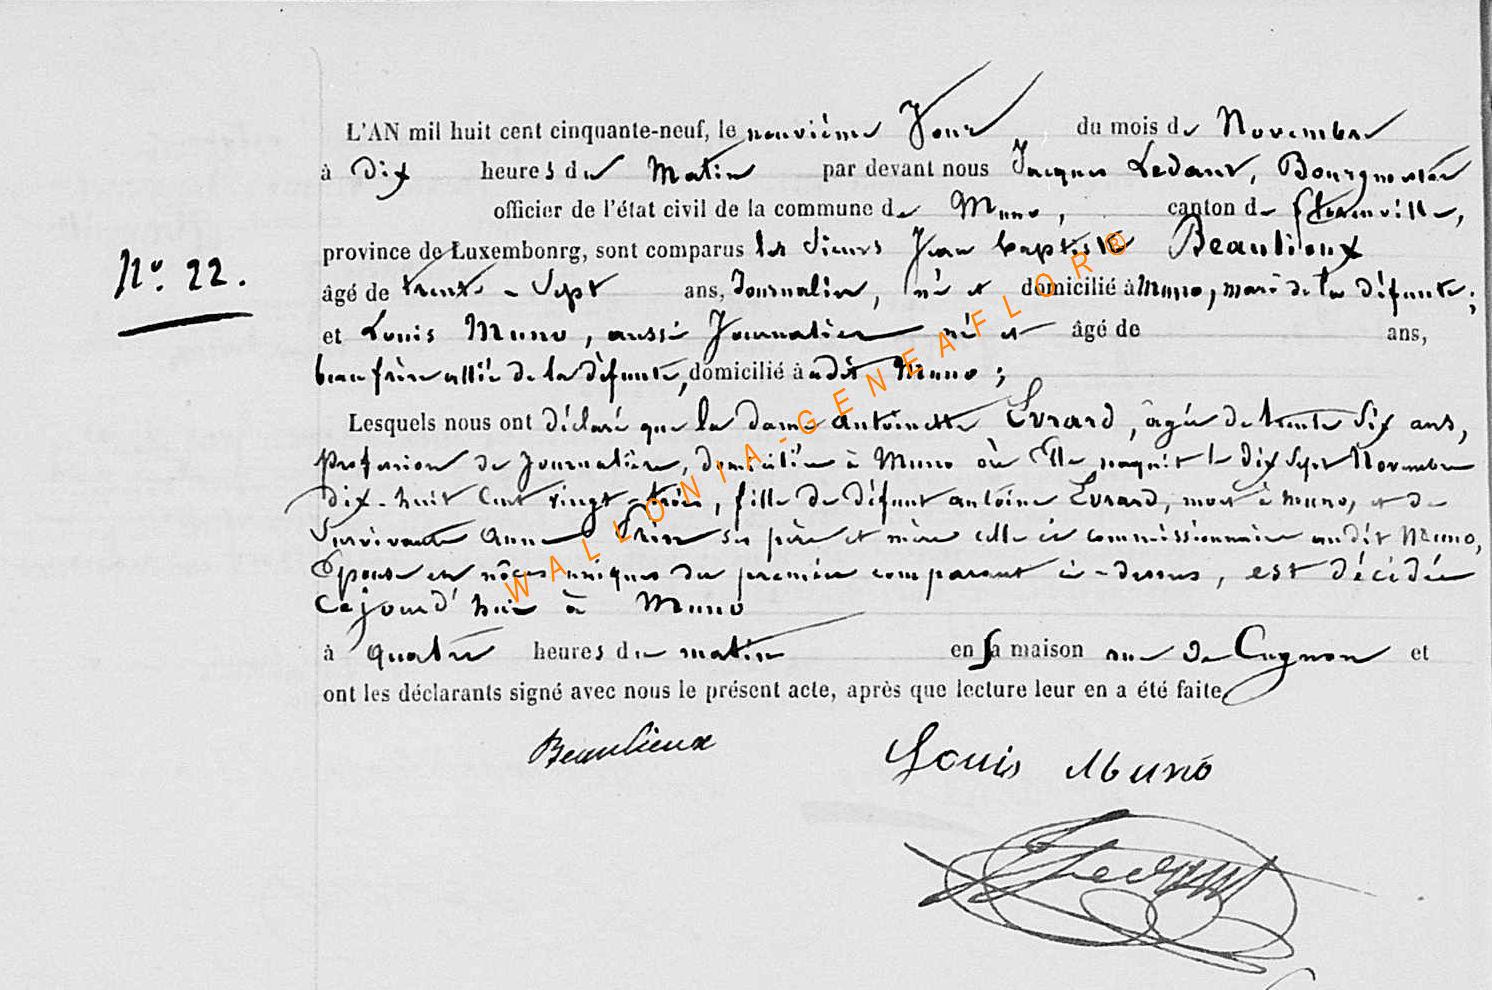 L'AN mil huit cent cinquante-neuf, le neuvième Jour du mois de Novembre
à Dix heures du Matin par devant nous Jacques Ledant, Bourgmestre
officier de l'état civil de la commune de Muno, canton de florenville,
province de Luxembonrg, sont comparus les Sieurs Jean baptiste Beaulieux
N° 22.
âgé de trente-Sept ans, Journalier, né et domicilié à Muno, mari de la défunte;
et Louis Muno, aussi Journalier né et âgé de ans,
beau frère allié de la défunte, domicilié à adit Muno;
Lesquels nous ont déclaré que la dame antoinette Evrard, âgée de trente Six ans,
profession de Journalière, domiciliée à Muno où Elle naquit le dix Sept Novembre
dix-huit Cent vingt-trois, fille de défunt antoine Evrard, mort à muno, et de
Survivante anne ses père et mère celle ci commissionnaire audit Muno,
Epouse en nôces uniques du premier comparant ci-dessus, est décédée
Cejourd'hui à Muno
à quatre heures du matin en Sa maison rue de Cugnon et
ont les déclarants signé avec nous le présent acte, après que lecture leur en a été faite
Beaulieux Louis Muno
Ledant
WALLONIA-GENEAFLORO®